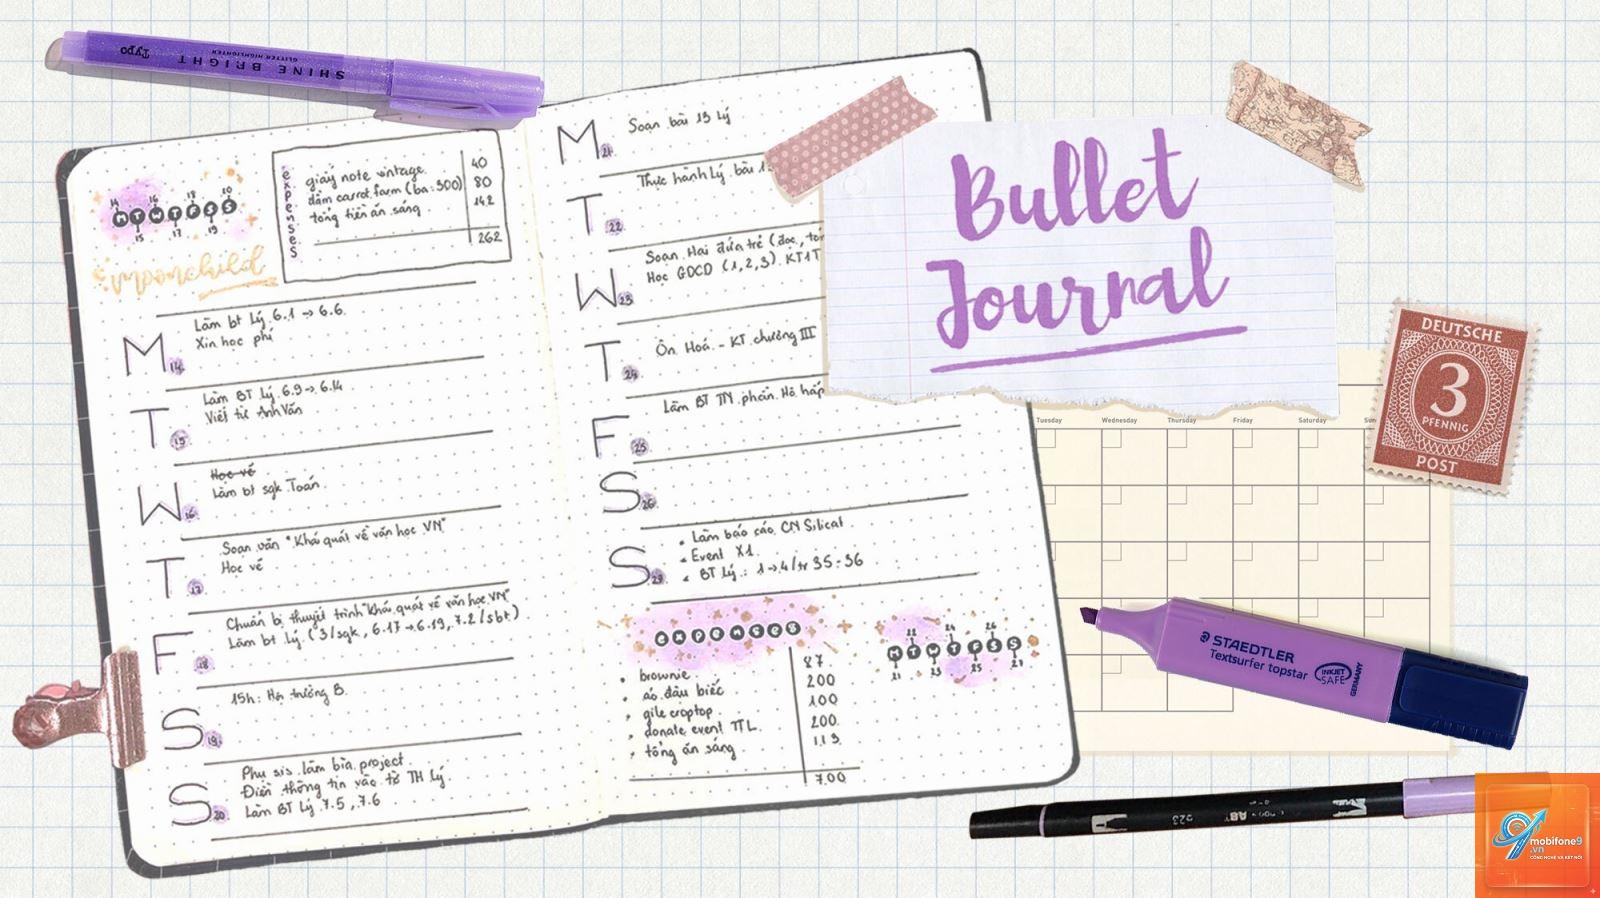 Typo
SHINE BRIGHT
GLITTER HIGHLIGHTER
14 16 18 20
M T W T F S S
15 17 19
moonchild
expenses
giấy note vintage 40
đầm carrot farm (ba: 500) 80
tổng tiền ăn sáng 142
262
M 14
Làm bt Lý 6.1 → 6.6
Xin học phí
T 15
Làm BT Lý 6.9 → 6.14
Viết từ Anh Văn
W 16
Học vẽ
Làm bt sgk Toán
T 17
Soạn văn "Khái quát về văn học VN"
Học vẽ
F 18
Chuẩn bị thuyết trình "khái quát về văn học VN"
Làm bt Lý (3/sgk, 6.17 → 6.19, 7.2/sbt)
S 19
15h: Hội trường B.
S 20
Phụ sis làm bìa project
Điền thông tin vào tờ TH Lý
Làm BT Lý 7.5, 7.6
M 21
Soạn bài 13 Lý
T 22
Thực hành Lý bài
W 23
Soạn Hai đứa trẻ (đọc,
Học GDCD (1,2,3). KT1T
T 24
Ôn Hoá - KT chương III
F 25
Làm BT TN phần Hô hấp
S 26
S
Làm báo cáo CN Silicat
Event X1
BT Lý: 1 → 4/tr 35-36
expenses
brownie 87
áo đầu biếc 200
gile croptop 100
donate event TTL 200
tổng ăn sáng 113
700
22 24 26
M T W T F S S
21 23 25 27
Bullet
Journal
Tuesday Wednesday Thursday Friday Saturday
DEUTSCHE
3
PFENNIG
POST
STAEDTLER
Textsurfer topstar
INKJET
SAFE
GERMANY
mobifone9
.vn
CÔNG NGHỆ VÀ KẾT NỐI